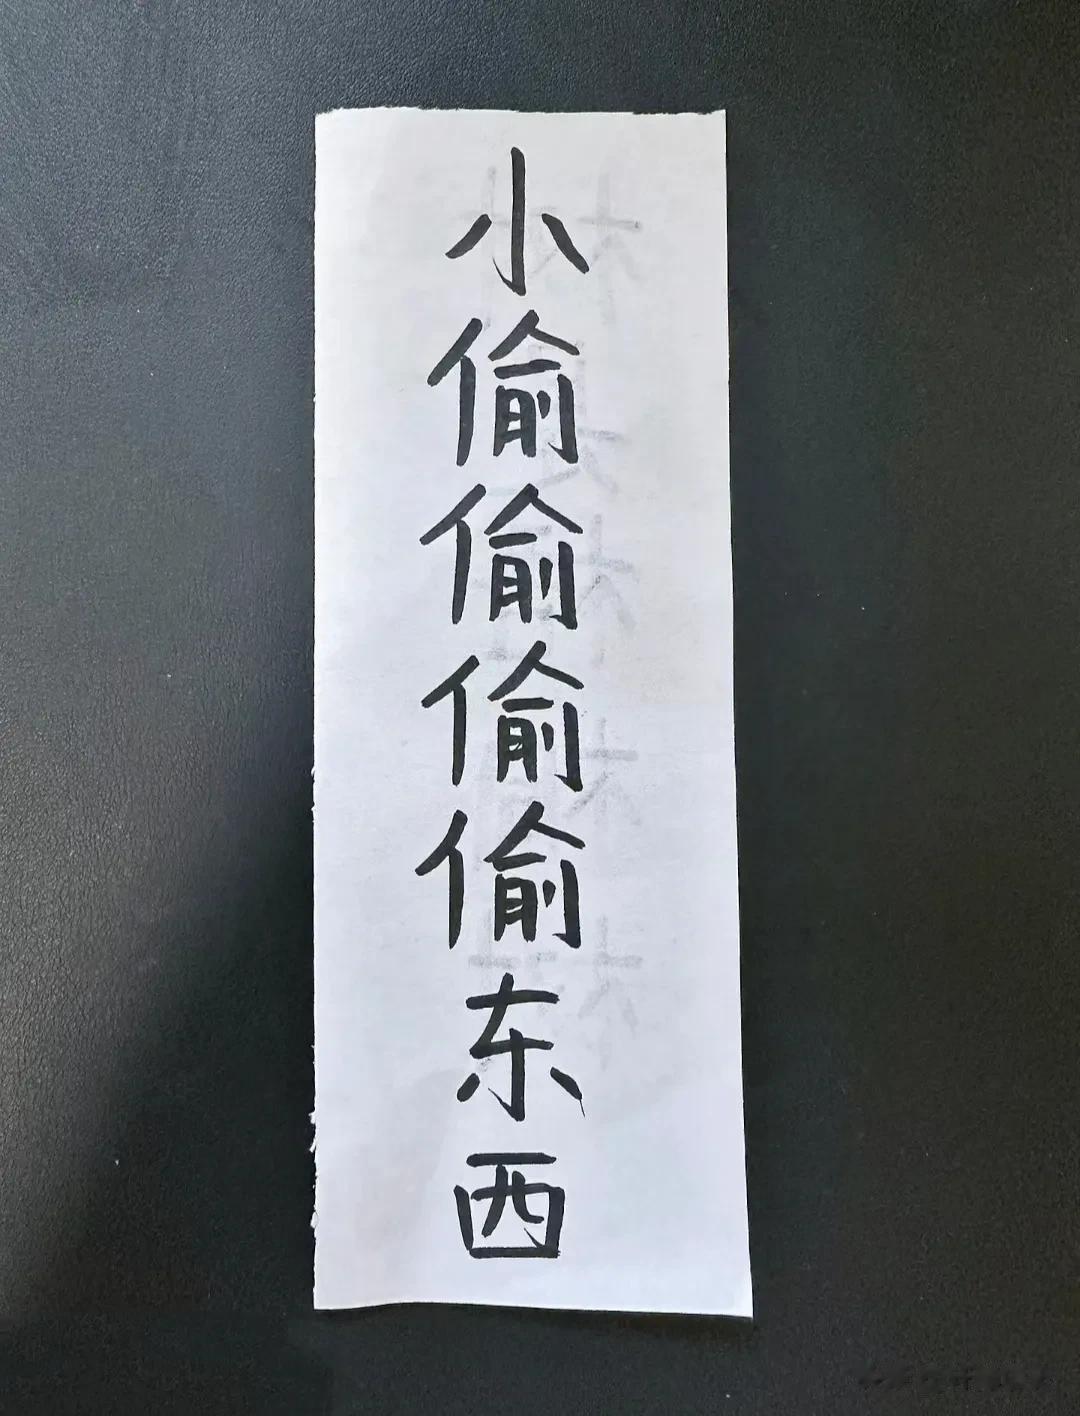 小偷偷偷偷东西